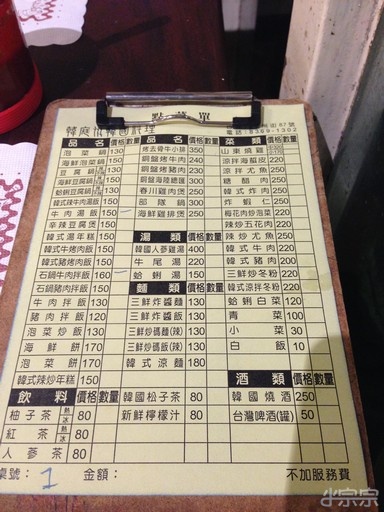 點菜單
韓庭州韓國料理
電話:8369-1302
品名 價格 數量
泡菜鍋 130
海鮮泡菜鍋 150
豆腐鍋
海鮮豆腐鍋 150
蛤蜊豆腐鍋
韓式辣牛肉湯飯 150
牛肉湯飯 150
辛辣豆腐煲 150
韓式湯年糕 150
韓式牛烤肉飯 150
韓式豬烤肉飯 150
石鍋牛肉拌飯 160
石鍋豬肉拌飯 150
牛肉拌飯 130
豬肉拌飯 120
泡菜炒飯 130
海鮮餅 170
泡菜餅 170
韓式辣炒年糕 150
飲料 價格 數量
柚子茶 熱 冰 80
紅茶 熱 冰 80
人參茶 80
品名 價格 數量
烤去骨牛小排 350
銅盤烤牛肉 240
銅盤烤豬肉 230
銅盤海陸總匯 300
春川雞肉煲 250
部隊鍋 300
海鮮雞排煲 250
湯類 價格 數量
韓國人參雞湯 400
牛尾湯 220
蛤蜊湯 150
麵類 價格 數量
三鮮炸醬麵 130
三鮮炒醬麵 130
三鮮炒碼麵(辣) 130
三鮮炒碼飯(辣) 130
韓式涼麵 180
韓國松子茶 80
新鮮檸檬汁 80
菜類 價格 數量
山東燒雞
涼拌海蜇皮 220
涼拌魷魚 220
糖醋肉 250
韓式炸肉 250
炸蝦仁 250
梅花肉炒泡菜 220
辣炒五花肉 220
辣炒魷魚 250
韓式牛肉 220
韓式豬肉 220
三鮮炒冬粉 220
韓式涼拌冬粉 220
蛤蜊白菜 120
青菜 100
小菜 30
白飯 10
酒類 價格 數量
韓國燒酒 250
台灣啤酒(罐) 50
桌號: 1 金額: 不加服務費
小宗宗